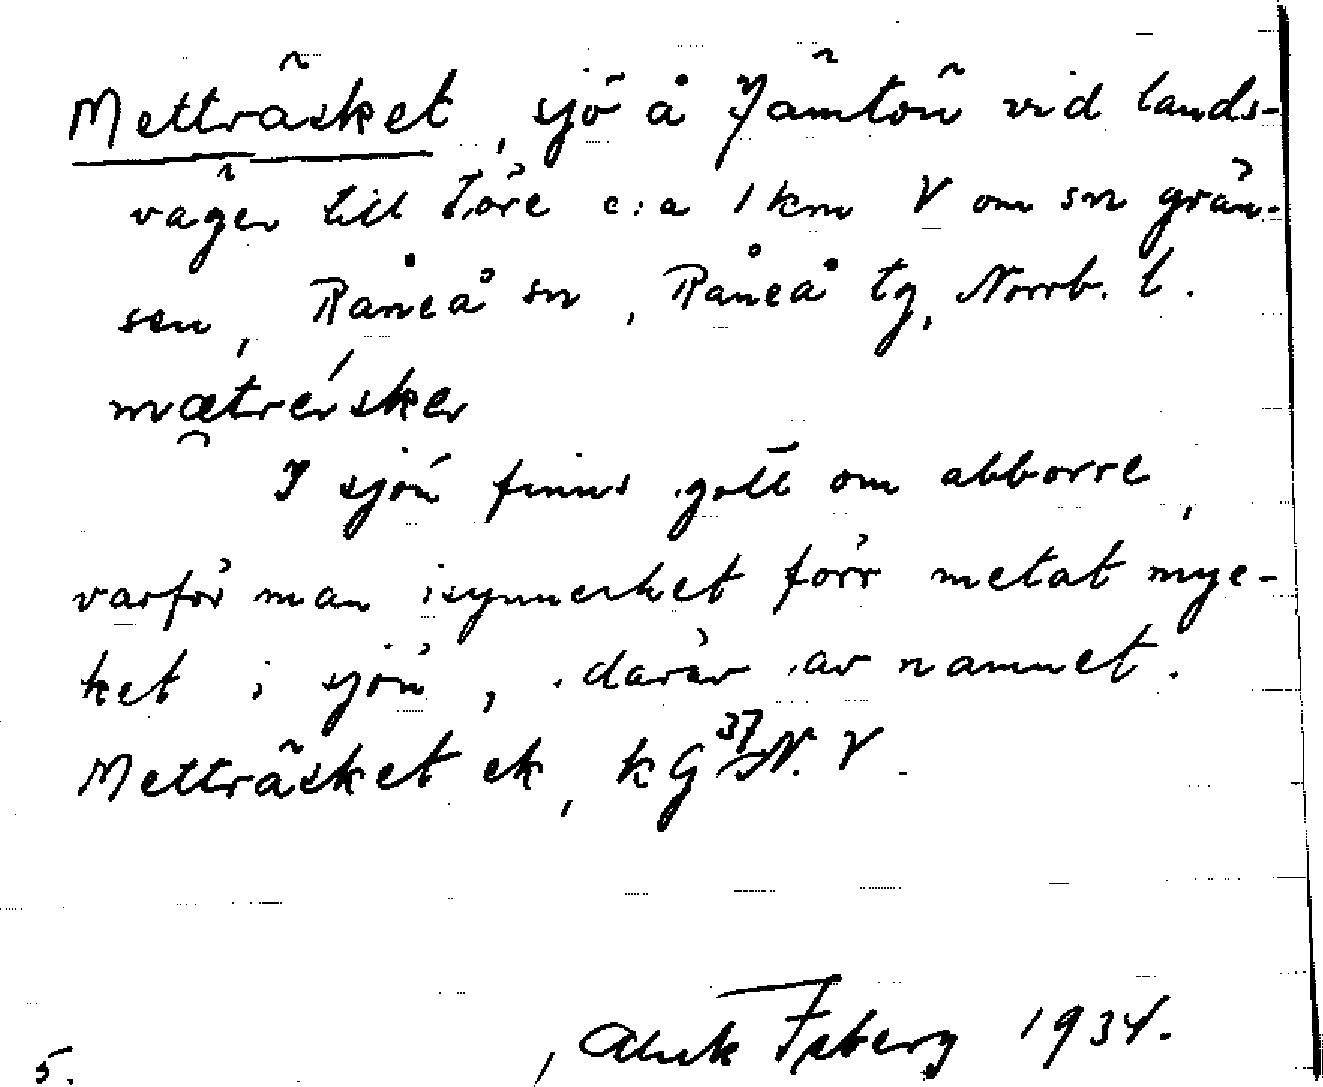 Metträsket, sjö å Jämtön vid lands-
vägen till Töre c:a 1 km V om sn grän-
sen, Råneå sn, Råneå tg, Norrb. l.
mætrésker
I sjön finns gott om abborre,
varför man isynnerhet förr metat myc-
ket i sjön, därav namnet.
Metträsket ek, kG 37 N.V.
Isberg 1934.
5.